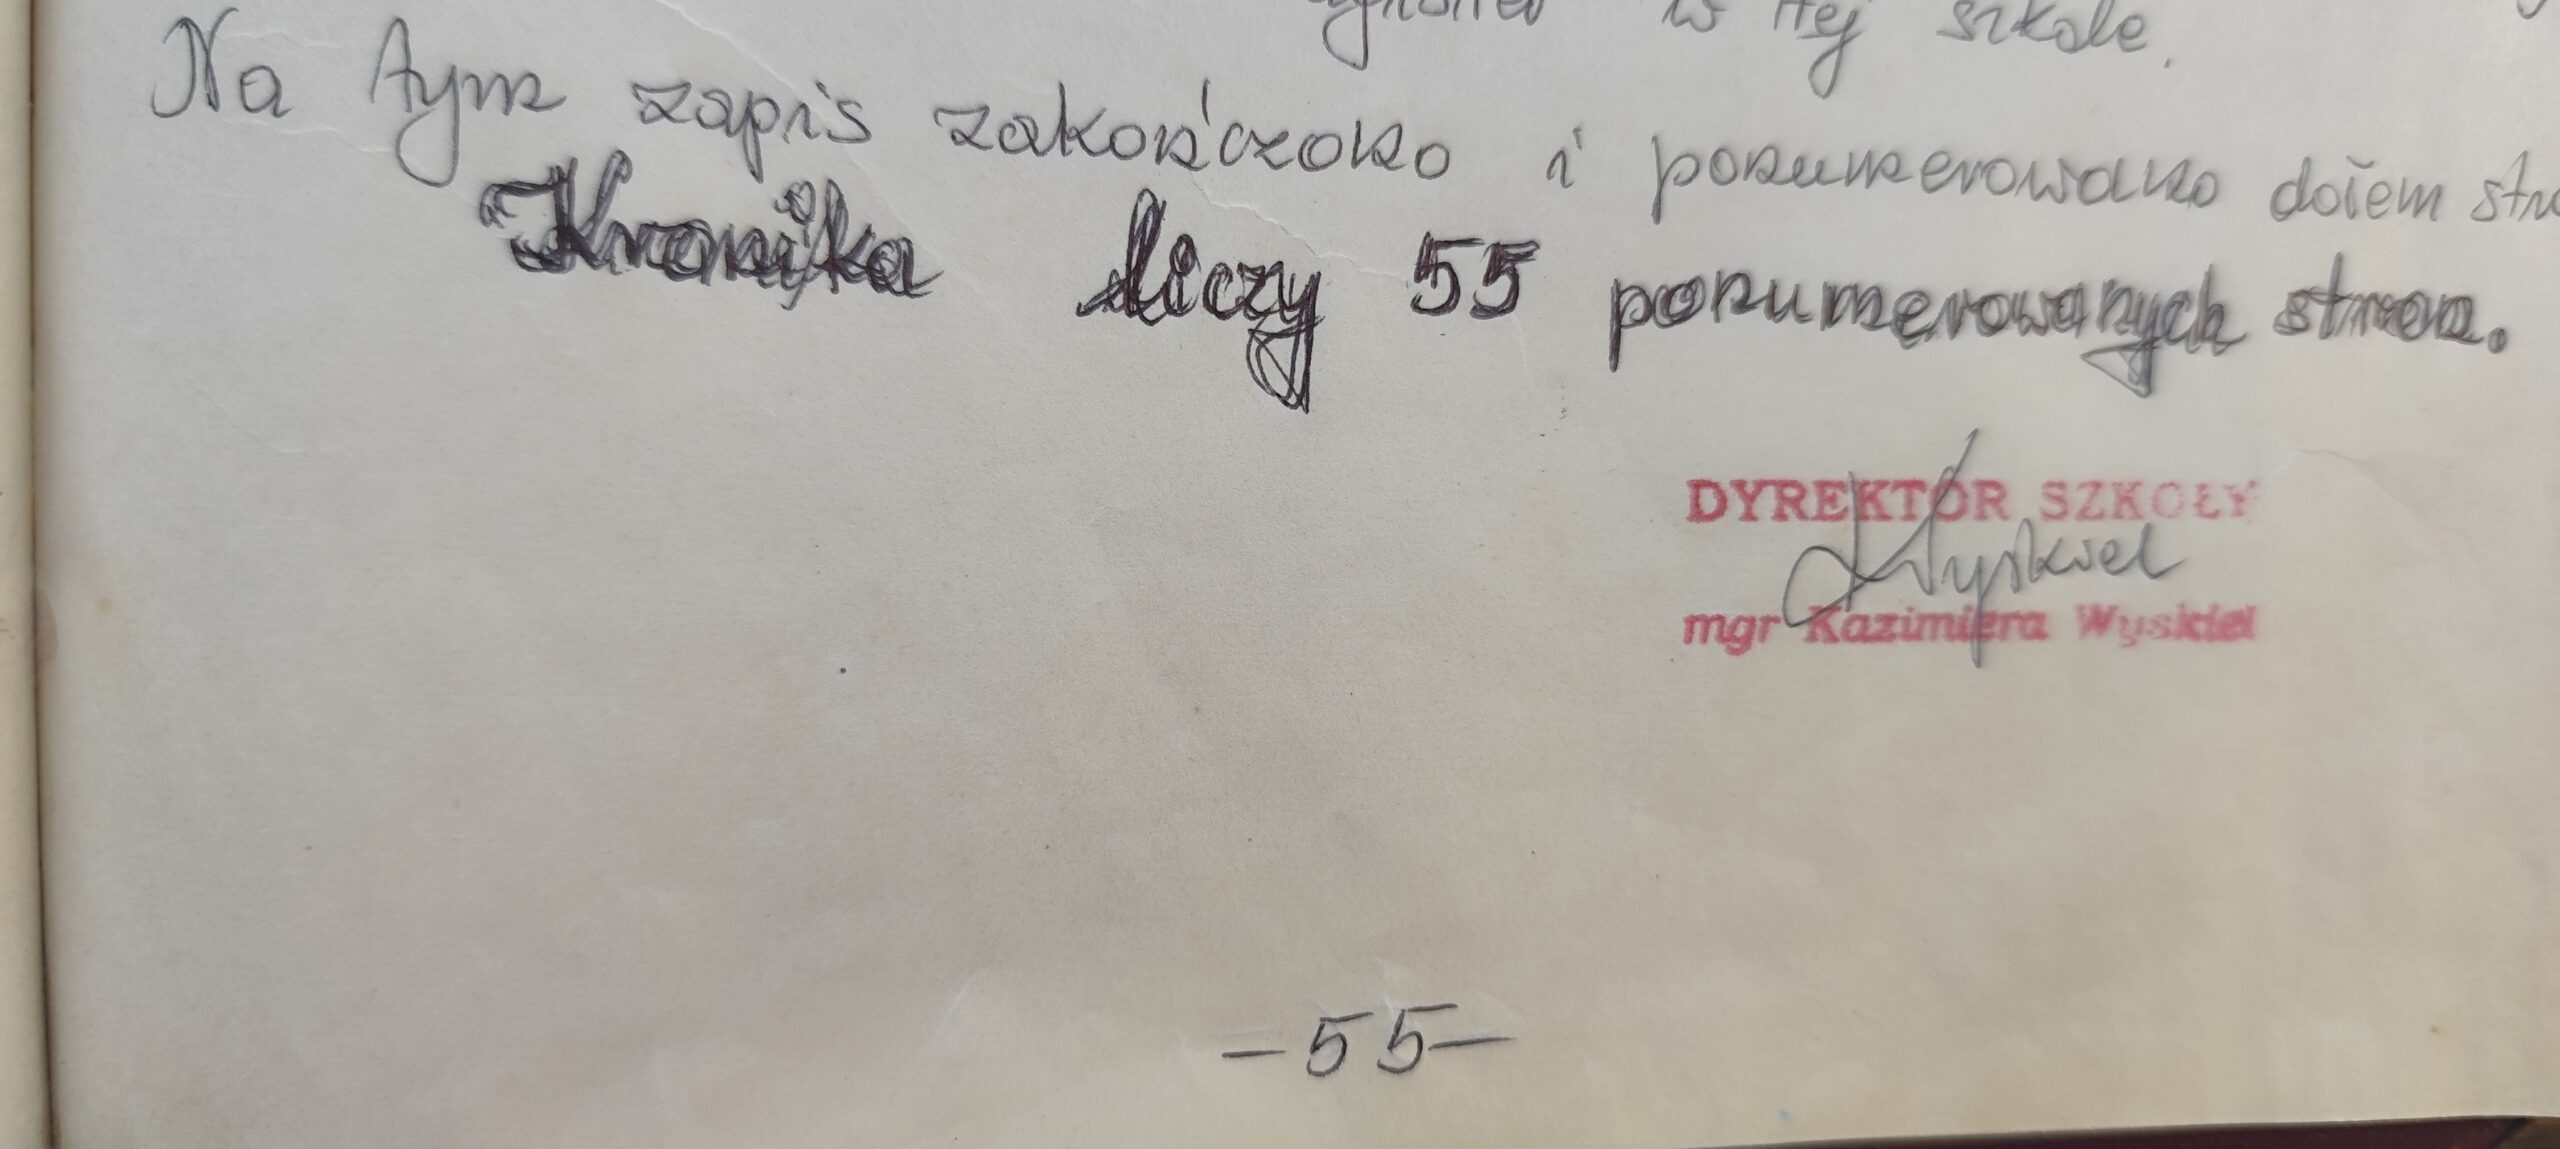 w tej szkole.
Na tym zapis zakończono i ponumerowano dołem
Kronika liczy 55 ponumerowanych stron.
DYREKTOR SZKOŁY
Wyskiel
mgr Kazimiera Wyskiel
-55-